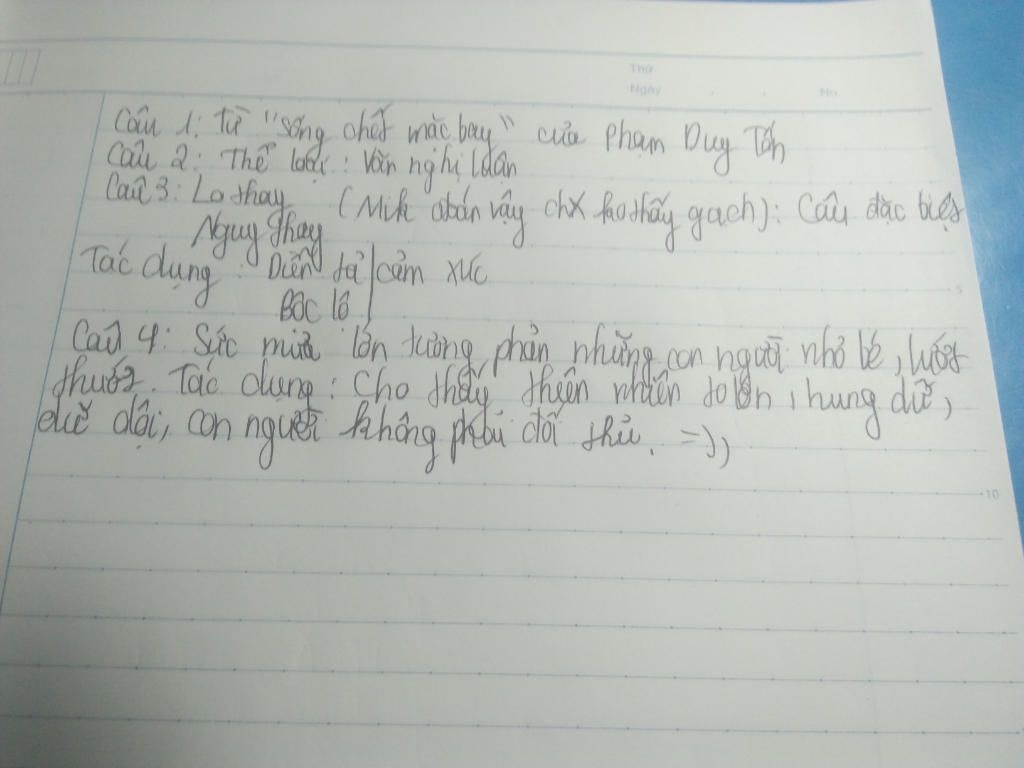 Thứ
Ngày No
Câu 1: Từ "sống chết mặc bay" của Phạm Duy Tốn
Câu 2: Thể loại: Văn nghị luận
Câu 3: Lo thay (Mik đoán vậy chx ko thấy gạch): Câu đặc biệt
Nguy thay
Tác dụng: Diễn tả cảm xúc
Bộc lộ
Câu 4: Sức mưa lớn tương phản những con người nhỏ bé, lướt
thướt. Tác dụng: Cho thấy thiên nhiên to lớn, hung dữ,
dữ dội, con người không phải đối thủ. =)),
5
10